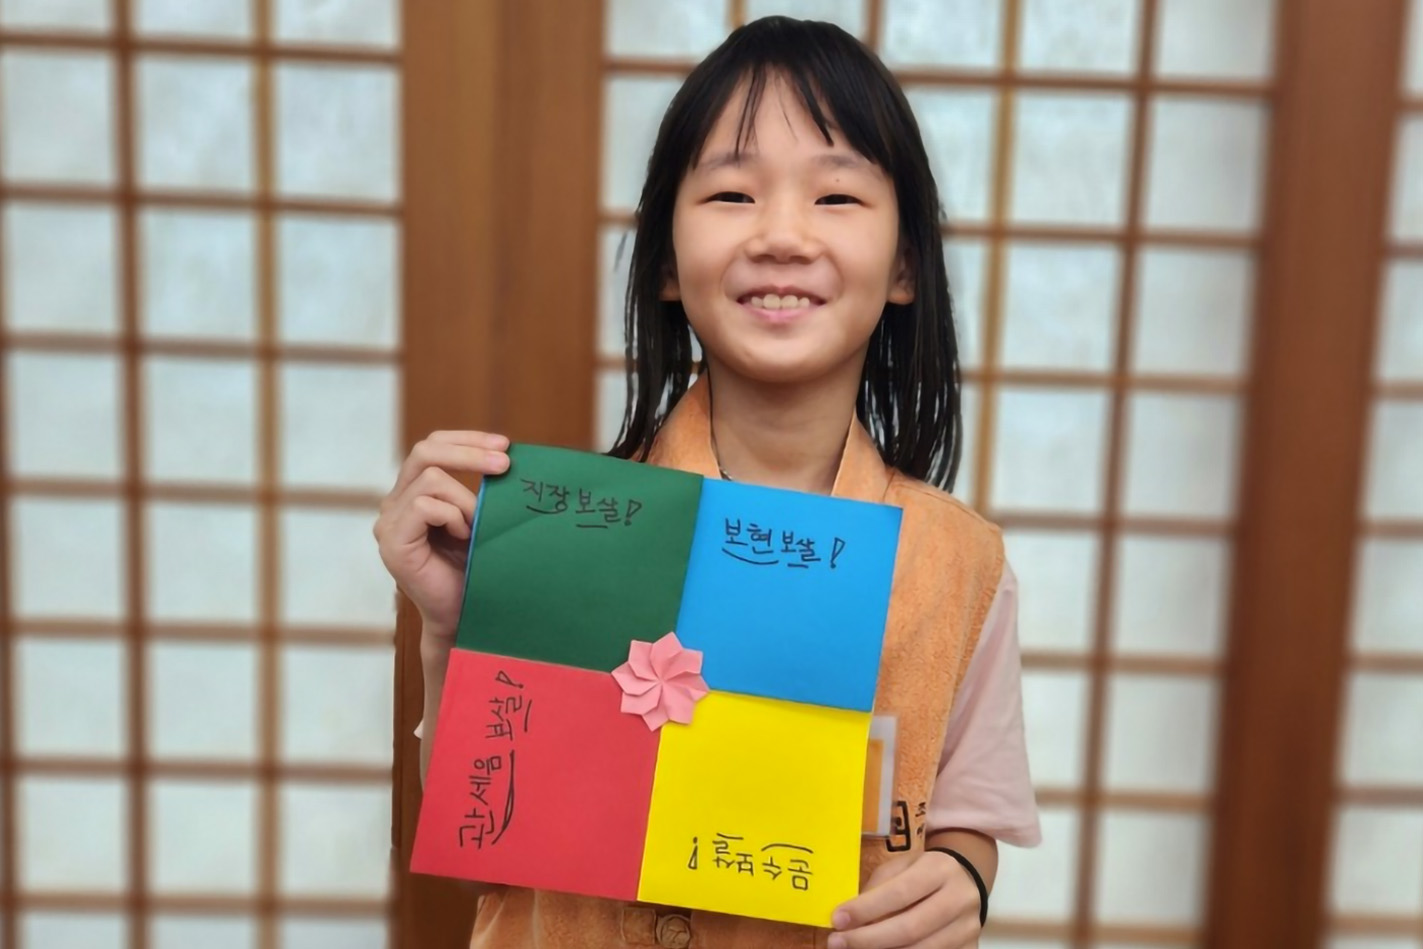 지장보살!
보현보살!
관세음 보살!
문수보살!